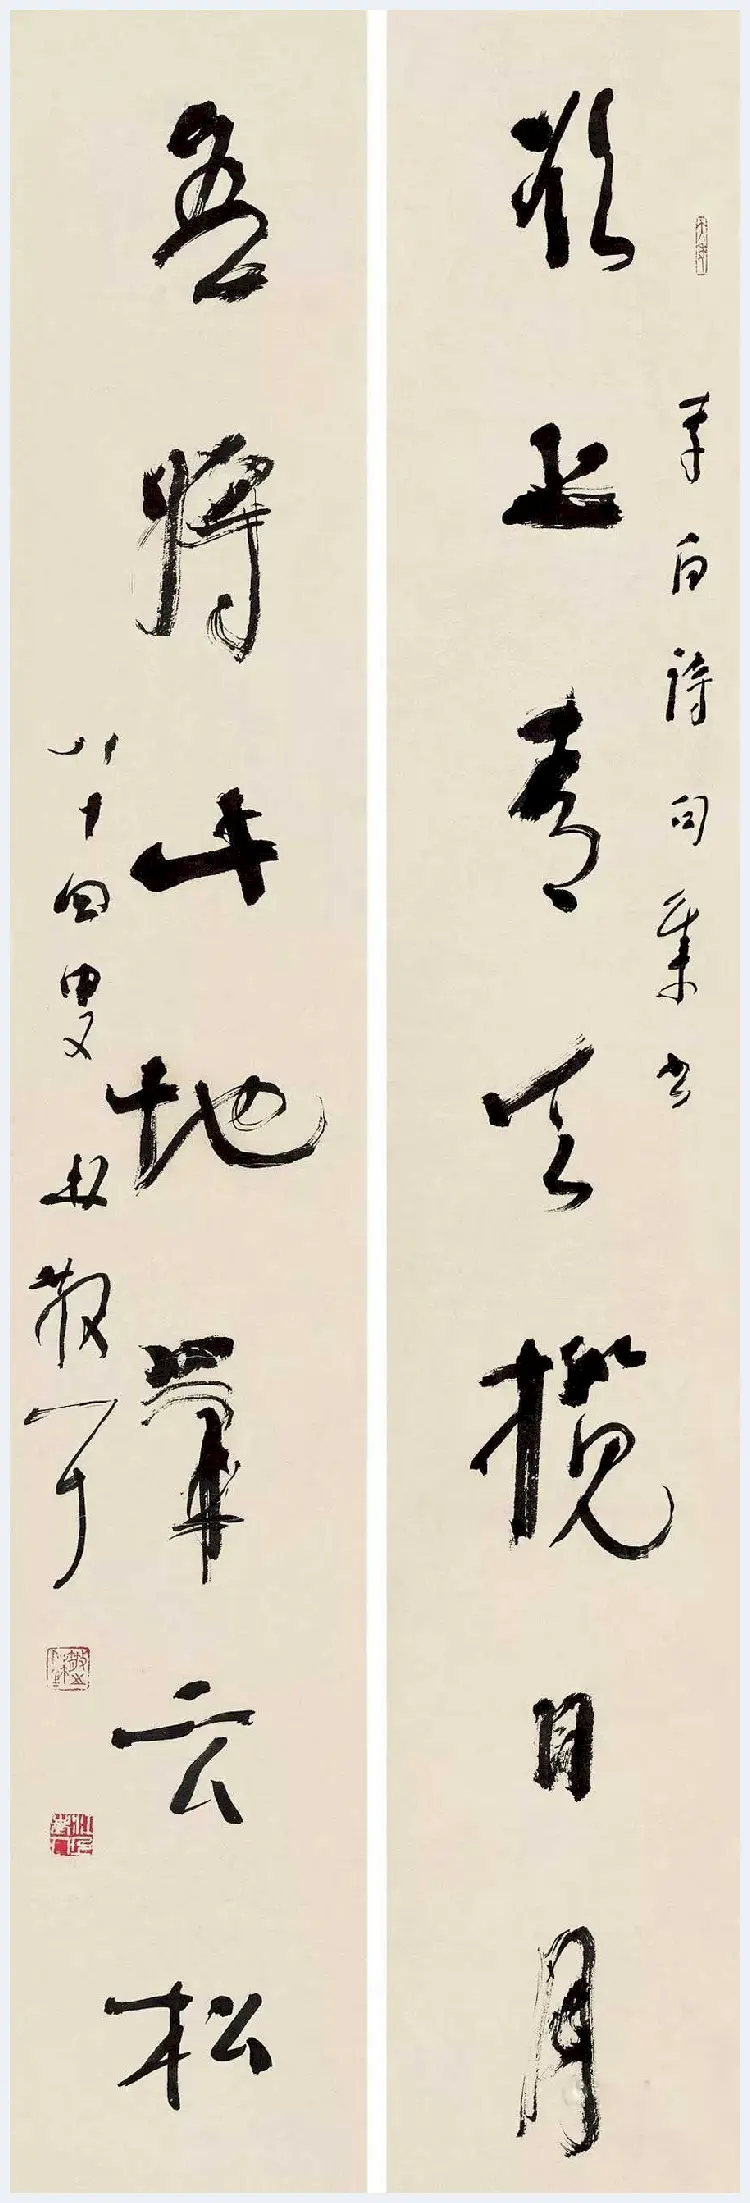 李白诗句集书
欲上青天揽日月
吾将此地巢云松
八十四叟林散耳